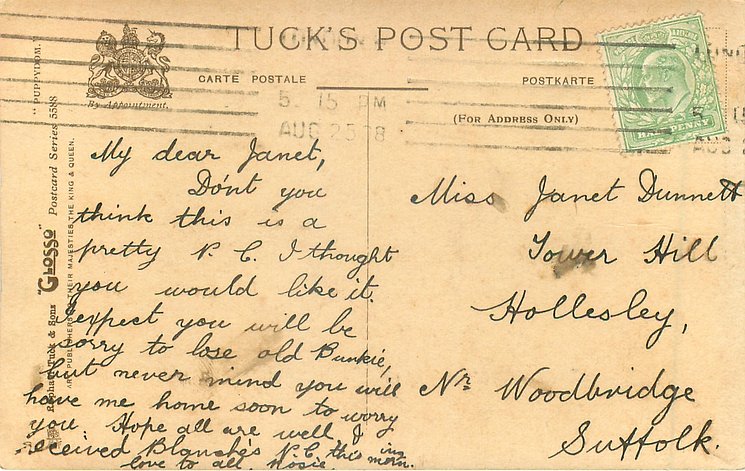 TUCK'S POST CARD
CARTE POSTALE
POSTKARTE
By Appointment.
(FOR ADDRESS ONLY)
"PUPPYDOM."
Raphael Tuck & Sons "GLOSSO" Postcard Series 5588
ART PUBLISHERS TO THEIR MAJESTIES THE KING & QUEEN.
5. 15 PM
AUG 25 08
HALFPENNY
My dear Janet,
Do'nt you
think this is a
pretty P. C. I thought
you would like it.
I expect you will be
sorry to lose old Bunkie,
but never mind you will
have me home soon to worry
you Hope all are well I
received Blanche's P.C. this morn.
love to all. Rosie
Miss Janet Dunnett
Tower Hill
Hollesley,
Nr Woodbridge
Suffolk.